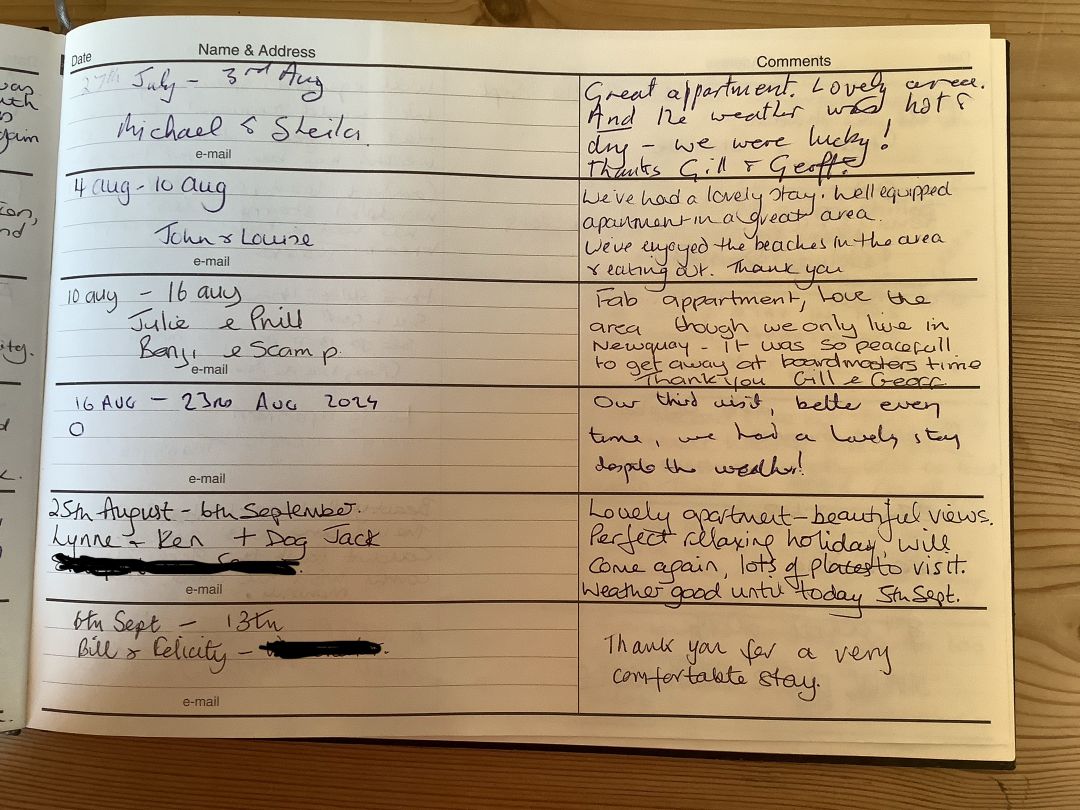 Date Name & Address Comments
27th July - 3rd Aug
Michael & Sheila
e-mail
Great appartment. Lovely area.
And the weather was hot &
dry - we were lucky!
Thanks Gill & Geoff!
4 aug - 10 aug
John & Louise
e-mail
We've had a lovely stay. Well equipped
apartment in a great area.
We've enjoyed the beaches in the area
& eating out. Thank you
10 aug - 16 aug
Julie e Phill
Benji e Scamp.
e-mail
Fab appartment, love the
area though we only live in
Newquay - It was so peacefull
to get away at boardmasters time
Thank you Gill e Geoff
16 AUG - 23RD AUG 2024
O
e-mail
Our third visit, better every
time, we had a lovely stay
despite the weather!
25th August - 6th September.
Lynne & Ken + Dog Jack
e-mail
Lovely apartment - beautiful views.
Perfect relaxing holiday, will
come again, lots of places to visit.
Weather good until today 5th Sept.
6th Sept - 13th
Bill & Felicity -
e-mail
Thank you for a very
comfortable stay.